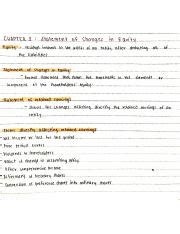 CHAPTER 3 : Statement of Changes in Equity
Equity - residual interest in the assets of an entity after deducting all of
the liabilities
Statement of Changes in Equity
- formal statement that shows the movements in the elements or
components of the shareholders' equity.
Statement of retained earnings
- shows the changes affecting directly the retained earnings of an
entity
Items directly affecting retained earnings
- Net income or loss for the period
- Prior period errors
- Dividends to shareholders
- Effect of change in accounting policy
- Conversion of preference shares into ordinary shares